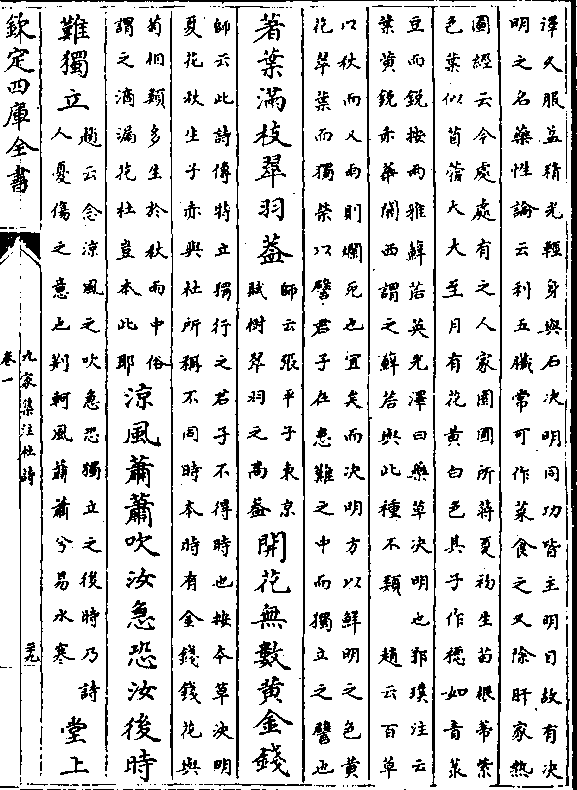 譯久服益精光輕身與石決明同功皆主明目故有決
明之名藥性論云利五臟常可作菜食之又除肝家熱
圖經云今處處有之人家園圃所蒔夏初生苗根蒂紫
色葉似苜蓿大大至月有花黃白色其子作穗如青菉
豆而銳按爾雅薢茩英光澤曰藥草決明也郭璞注云
葉黃銳赤華關西謂之薢茩與此種不類 趙云百草
以秋而又雨則爛死也宜矣而決明方以鮮明之色黃
花翠葉而獨榮以譬君子在患難之中而獨立之譬也
著葉滿枝翠羽蓋 師云張平子東京賦樹翠羽之高蓋 開花無數黃金錢
師云此詩傳特立獨行之君子不得時也按本草決明
夏花秋生子亦與杜所稱不同時本時有金錢錢花與
菊相類多生於秋雨中俗謂之滴漏花杜豈本此耶 涼風蕭蕭吹汝急恐汝後時
難獨立 趙云念涼風之吹急恐獨立之後時乃詩人憂傷之意也荆軻風蕭蕭兮易水寒 堂上
欽定四庫全書
九家集注杜詩
卷一